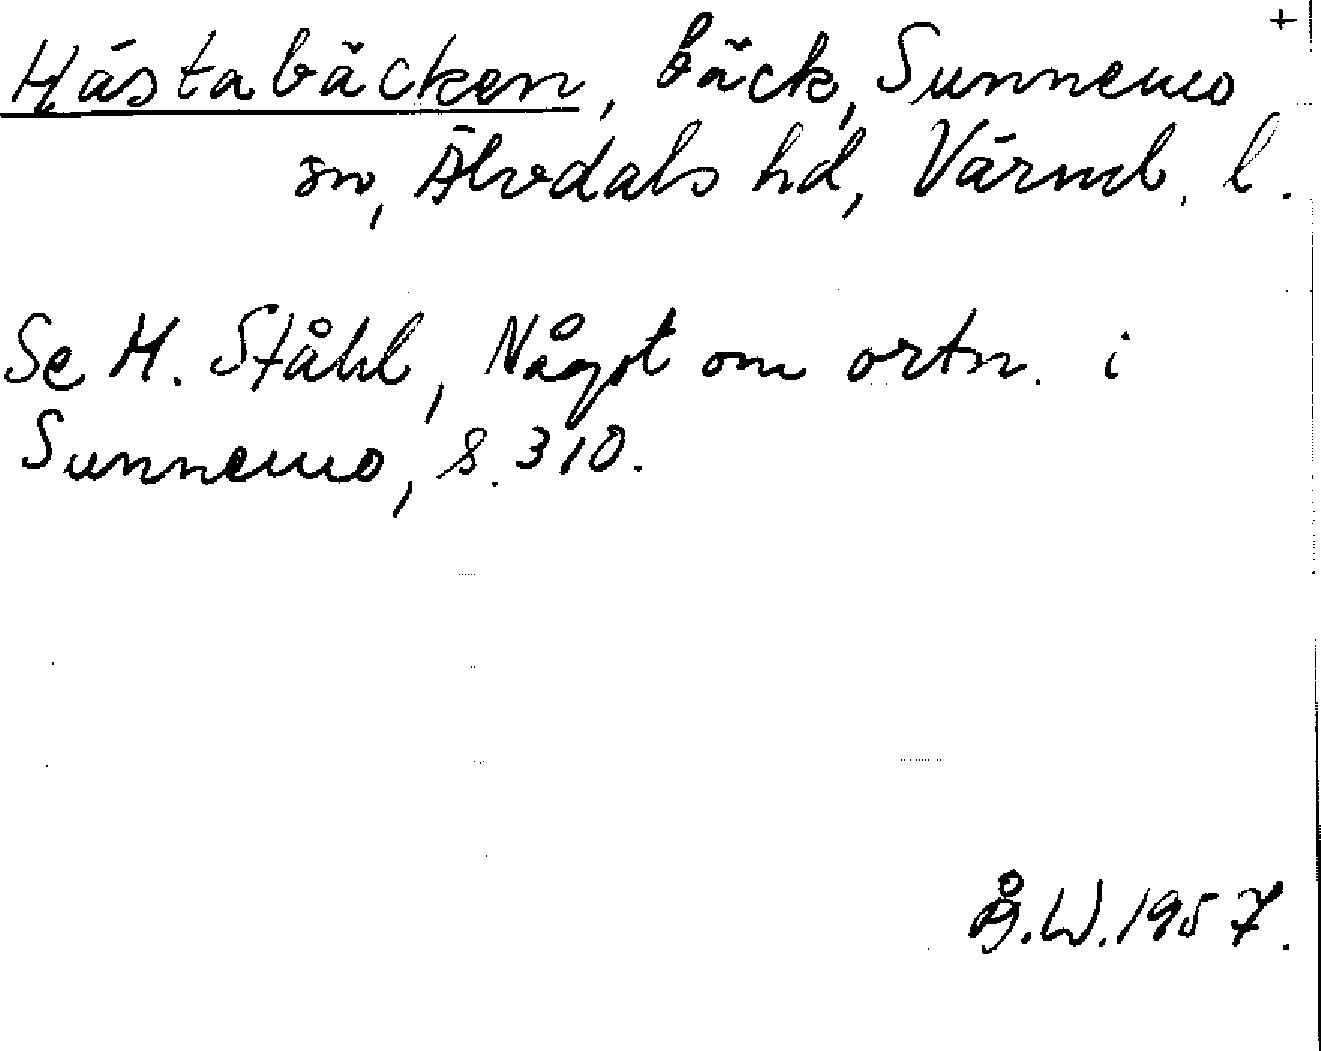 +
Hästabäcken, bäck, Sunnemo
sn, Älvdals hd, Värml. l.
Se H. Ståhl, Något om ortn. i
Sunnemo, s. 310.
Å.W. 1957.